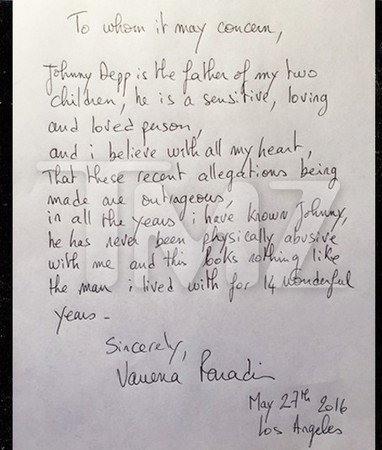 To whom it may concern,
Johnny Depp is the father of my two
children, he is a sensitive, loving
and loved person,
and i believe with all my heart,
That these recent allegations being
made are outrageous,
in all the years i have known Johnny,
he has never been physically abusive
with me and this looks nothing like
the man i lived with for 14 wonderful
years -
Sincerely,
Vanessa Paradis
May 27th 2016
Los Angeles
TMZ